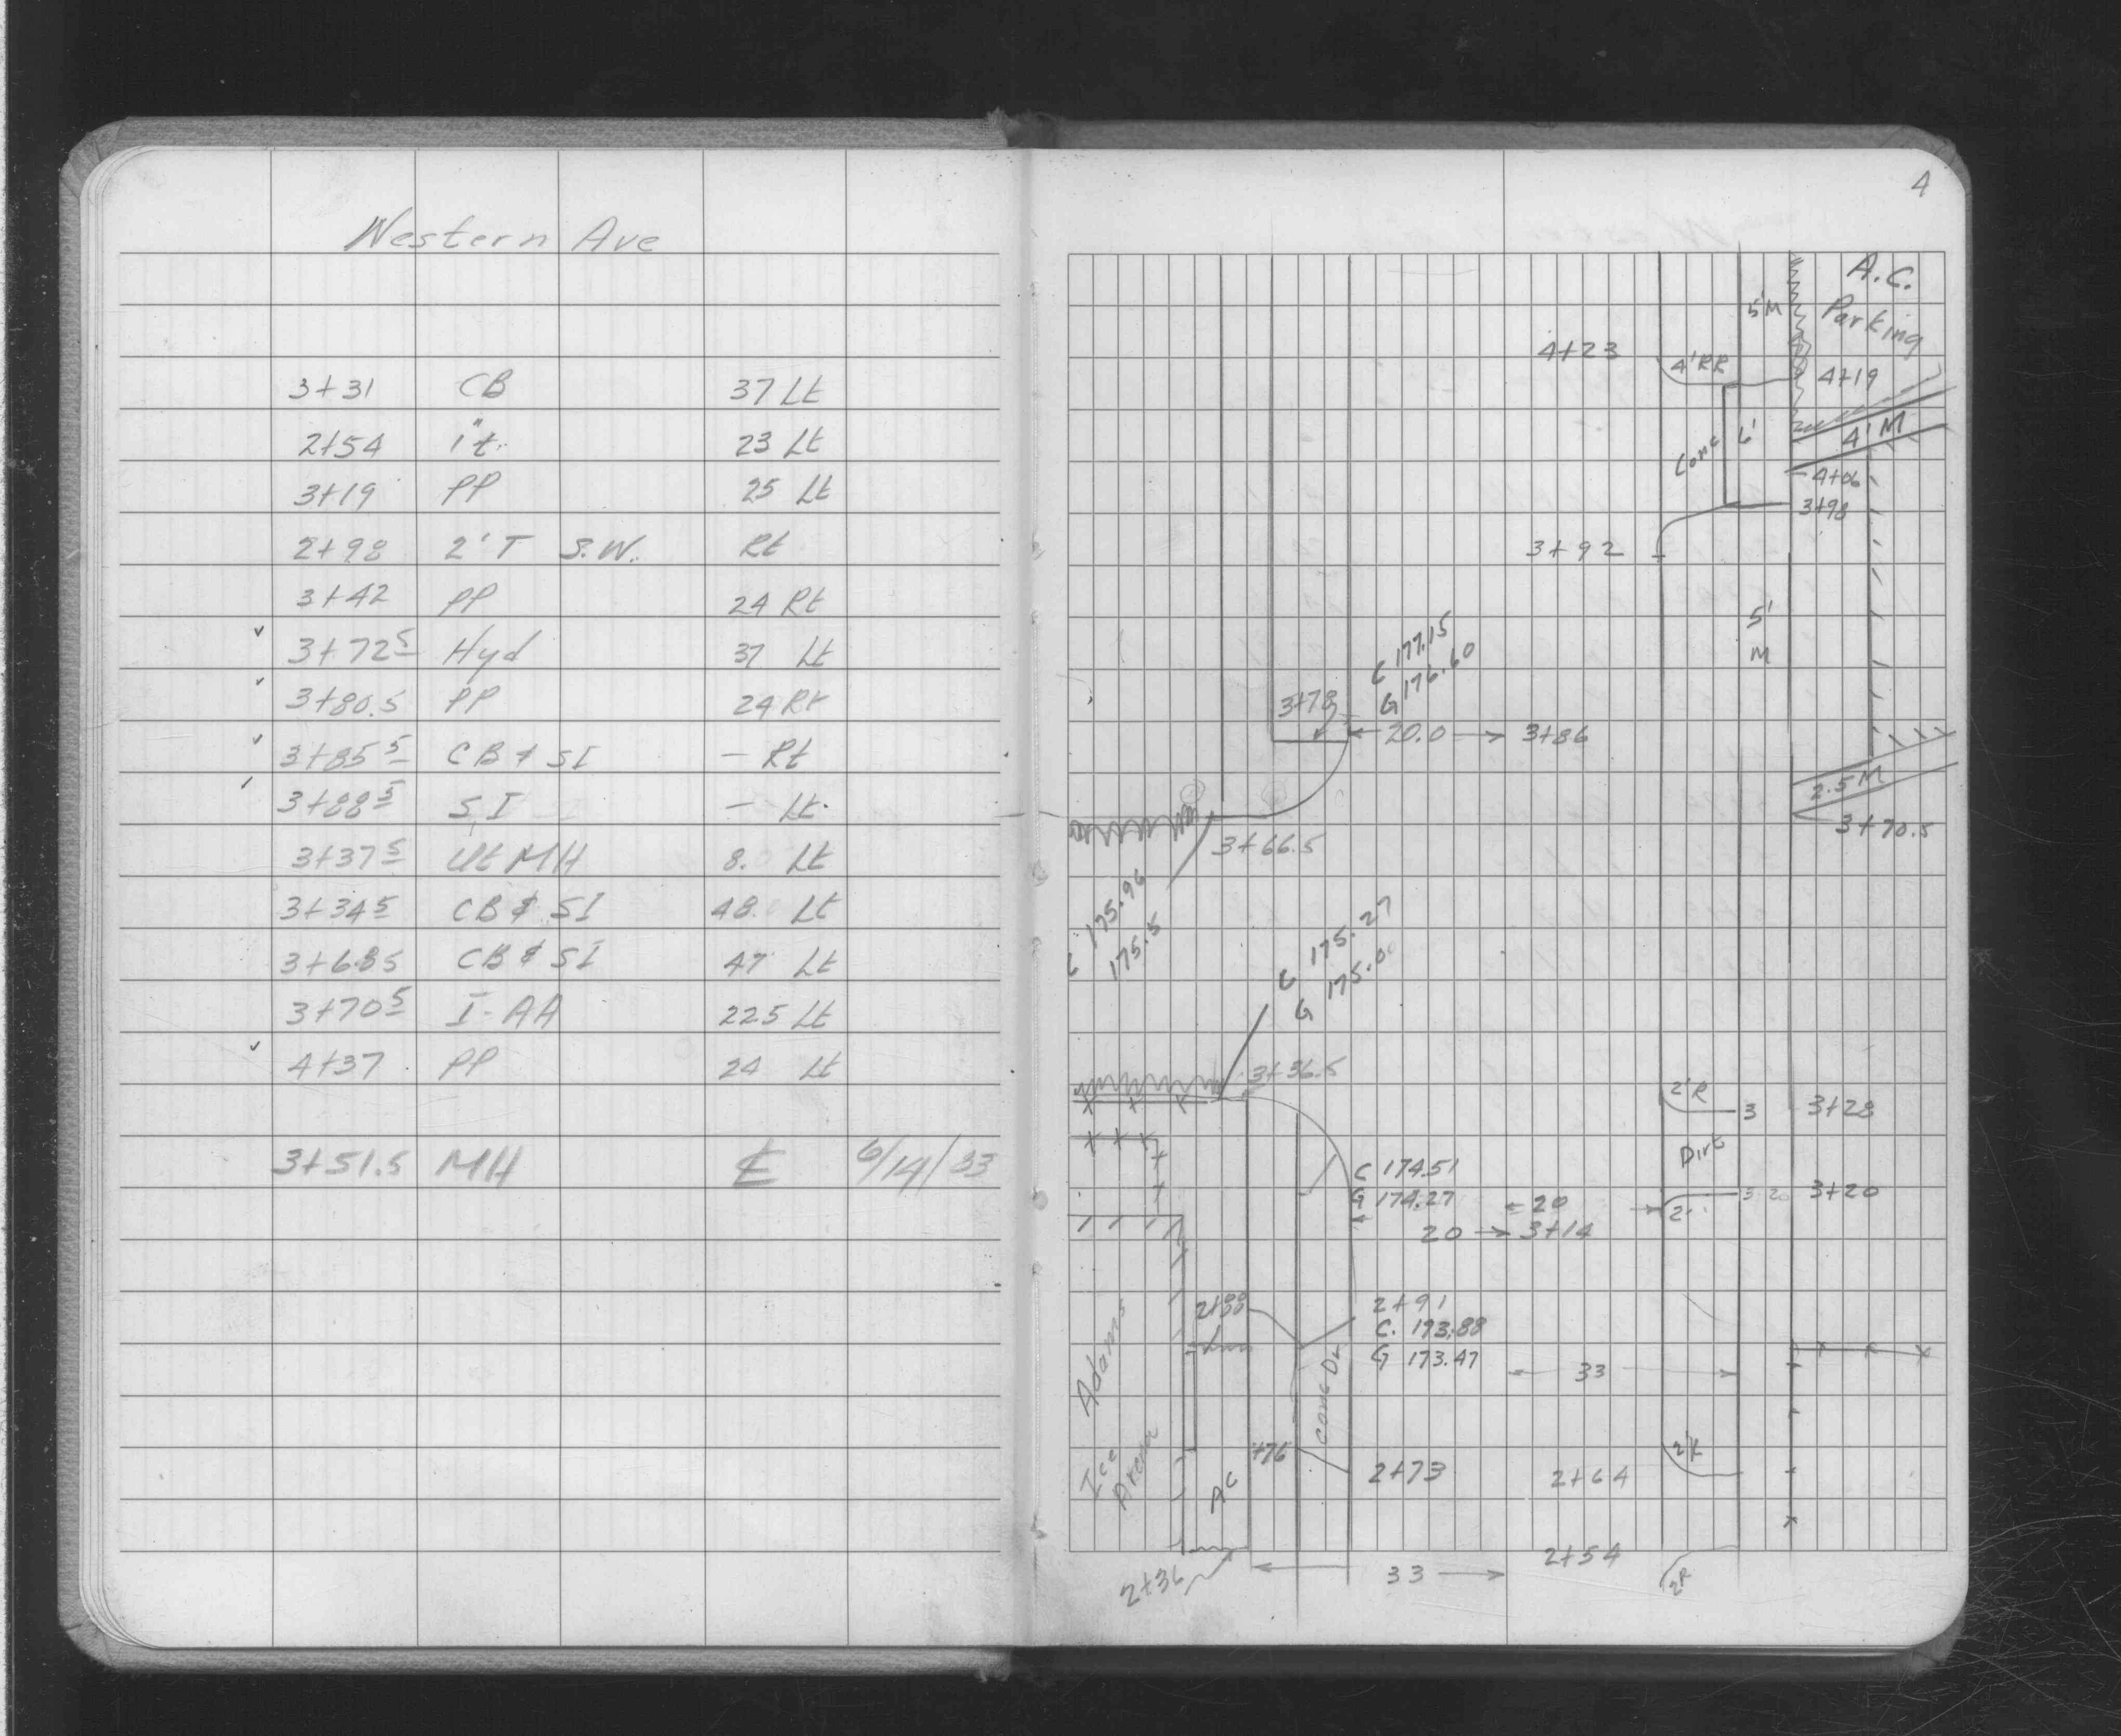 Western Ave
3+31 CB 37 Lt
2+54 1"t. 23 Lt
3+19 PP 25 Lt
2+98 2'T S.W. Rt
3+42 PP 24 Rt
3+72 5 Hyd 37 Lt
3+80.5 PP 24 Rt
3+85 5 CB & SI - Rt
3+88 5 SI - Lt.
3+37 5 Ut MH 8. Lt
3+34 5 CB & SI 48. Lt
3+68 5 CB & SI 47 Lt
3+70 5 I-AA 22.5 Lt
4+37 PP 24 Lt
3+51.5 MH ℄ 6/14/83
4
A.C.
Parking
5'M
4+23
4'RR
4+19
4'M
Conc
6'
4+06
3+98
3+92
5'
M
C 177.15
G 176.60
3+78
20.0
3+86
2.5 M
3+70.5
3+66.5
C 175.96
175.5
C 175.27
G 175.00
3+36.5
2'R
3
3+28
Dirt
C 174.51
G 174.27
20
3+20
2'
20 3+14
2+88
2+91
C. 173.88
G 173.47
33
Adams
Ice
Arena
Conc Dr
AC
+76
2+73
2+64
2'R
2+54
2+36
33
2R